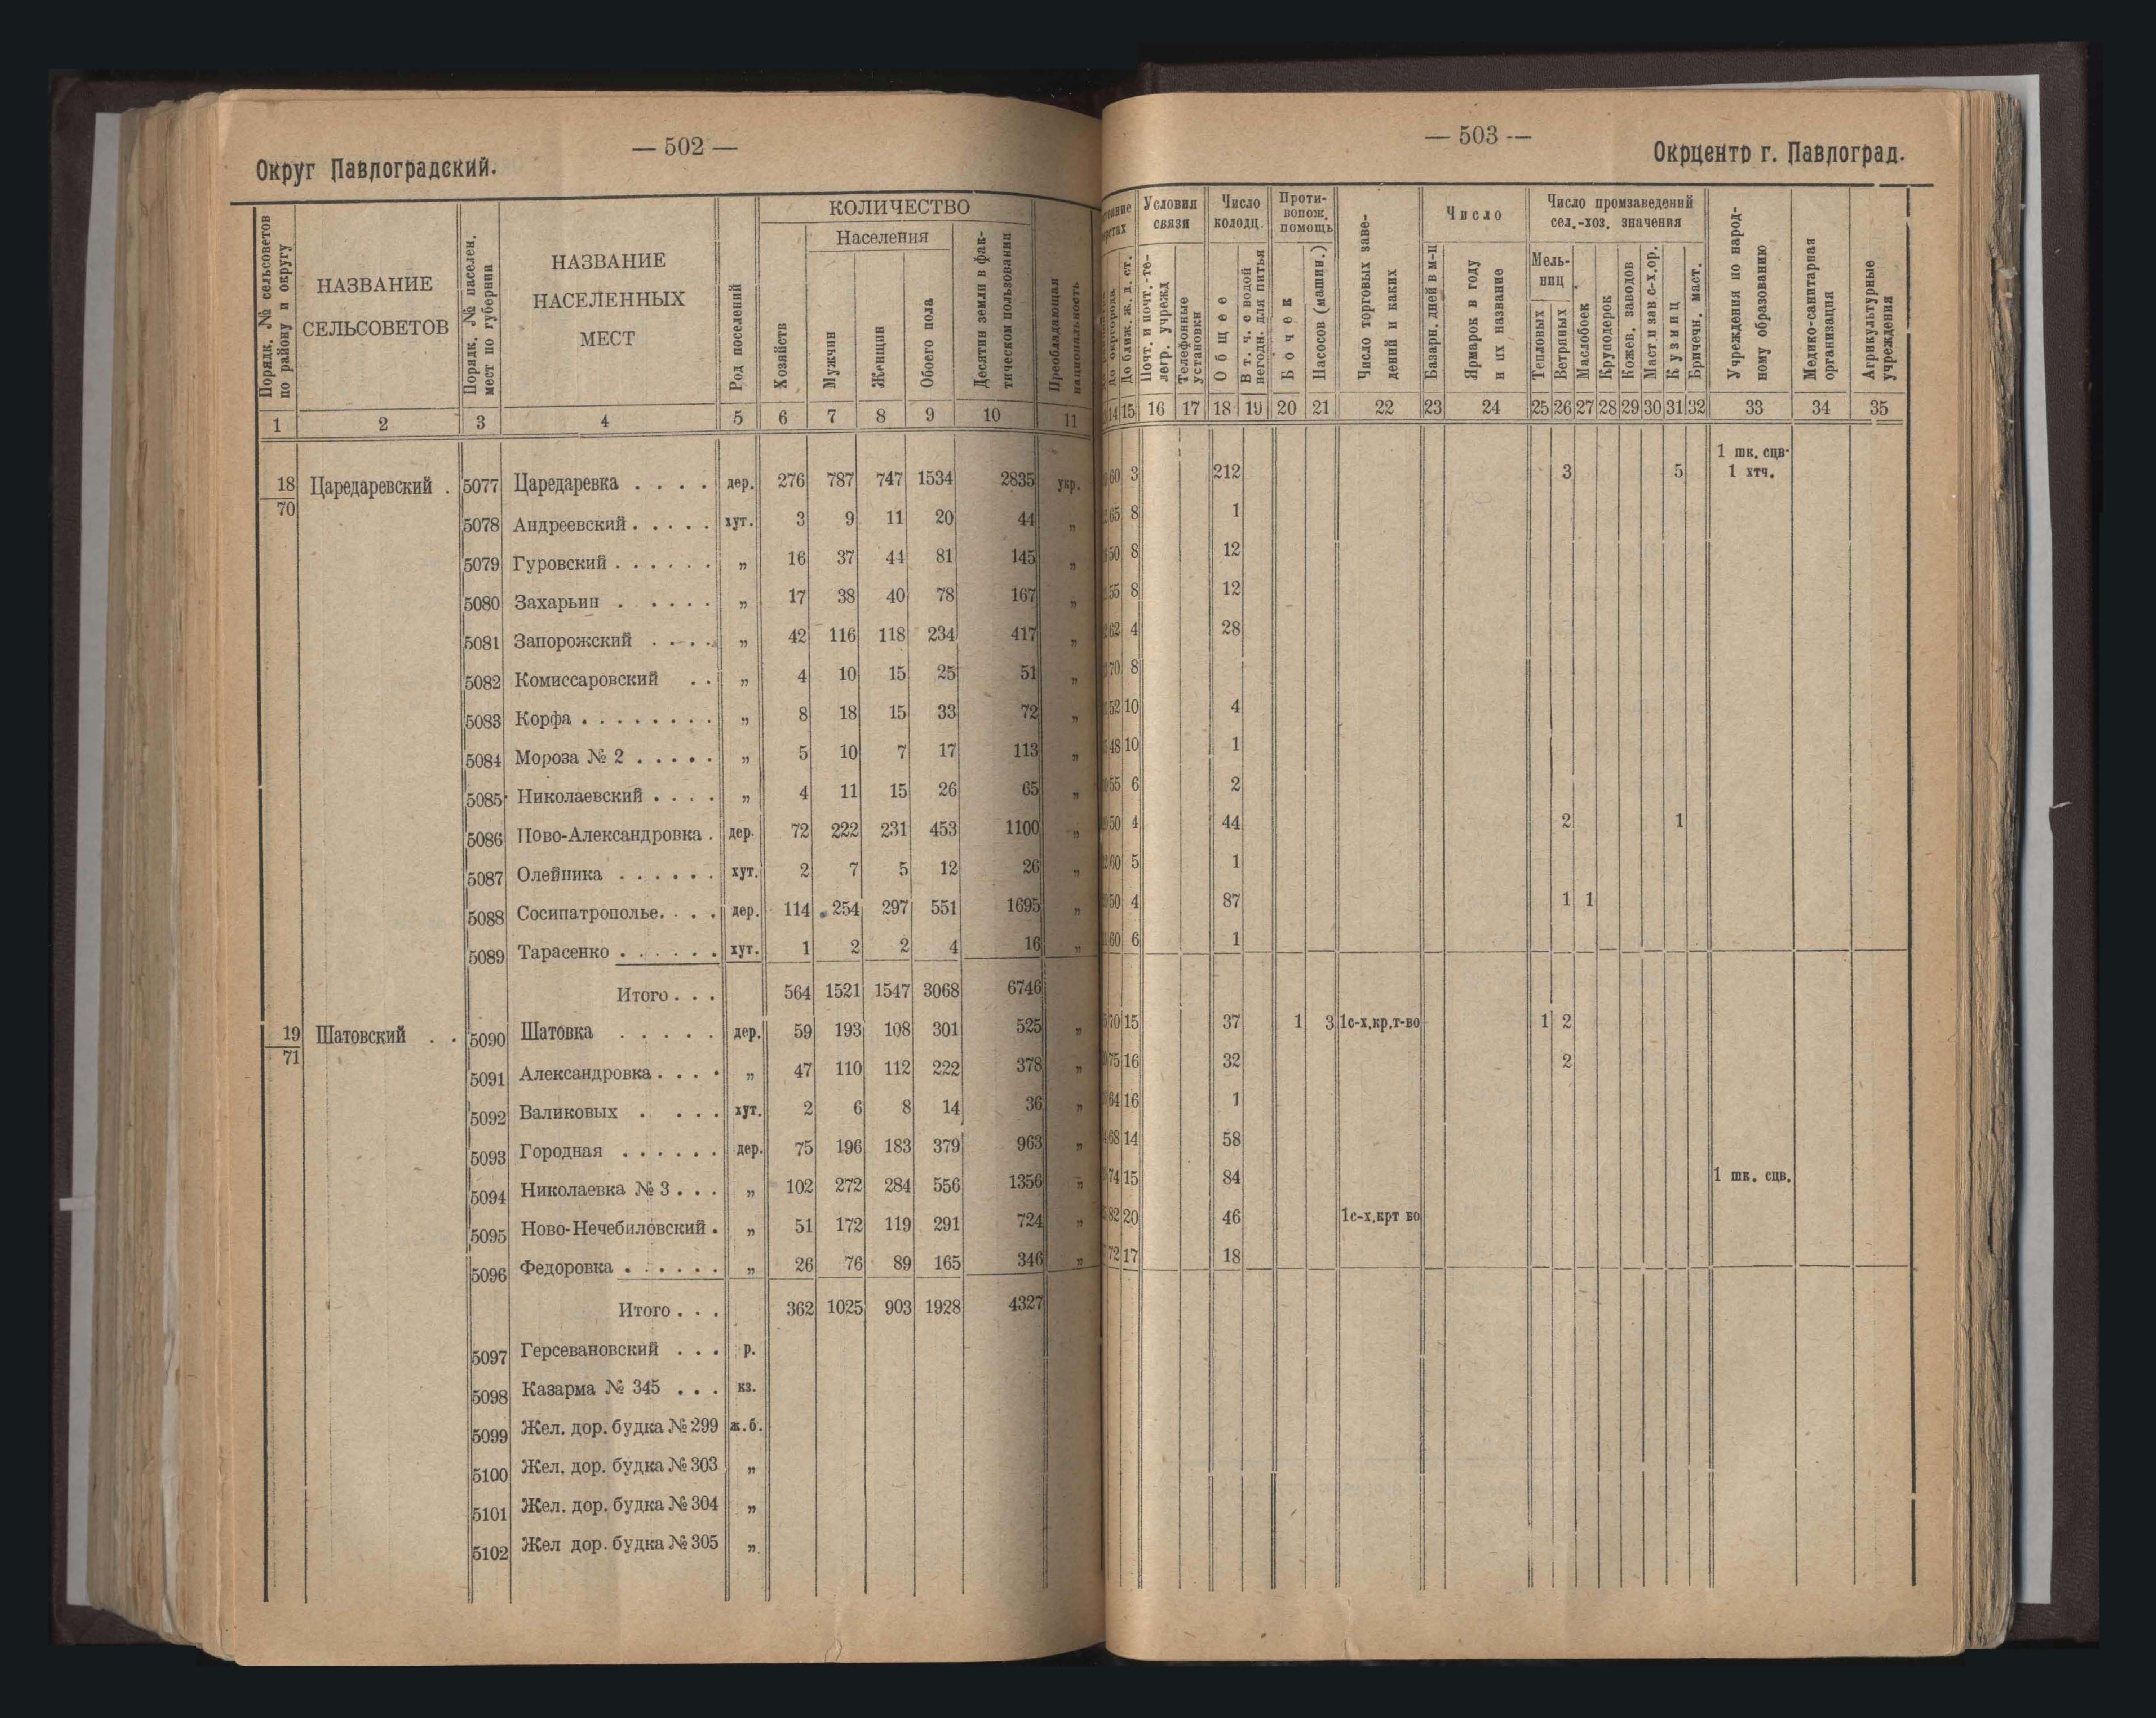 — 502 —
Округ Павлоградский.
Порядк. № сельсоветов по району и округу
НАЗВАНИЕ СЕЛЬСОВЕТОВ
Порядк. № населен. мест по губернии
НАЗВАНИЕ НАСЕЛЕННЫХ МЕСТ
Род поселений
КОЛИЧЕСТВО
Хозяйств
Населения
Мужчин
Женщин
Обоего пола
Десятин земли в фактическом пользовании
Преобладающая национальность
1 2 3 4 5 6 7 8 9 10 11
18/70 Царедаревский . 5077 Царедаревка . . . . дер. 276 787 747 1534 2835 укр.
5078 Андреевский . . . . . хут. 3 9 11 20 44 „
5079 Гуровский . . . . . . „ 16 37 44 81 145 „
5080 Захарьин . . . . . „ 17 38 40 78 167 „
5081 Запорожский . . . . „ 42 116 118 234 417 „
5082 Комиссаровский . . „ 4 10 15 25 51 „
5083 Корфа . . . . . . . . „ 8 18 15 33 72 „
5084 Мороза № 2 . . . . . „ 5 10 7 17 113 „
5085 Николаевский . . . . „ 4 11 15 26 65 „
5086 Ново-Александровка . дер. 72 222 231 453 1100 „
5087 Олейника . . . . . . хут. 2 7 5 12 26 „
5088 Сосипатрополье. . . . дер. 114 254 297 551 1695 „
5089 Тарасенко . . . . . . хут. 1 2 2 4 16 „
Итого . . . 564 1521 1547 3068 6746
19/71 Шатовский . . 5090 Шатовка . . . . . дер. 59 193 108 301 525 „
5091 Александровка . . . . „ 47 110 112 222 378 „
5092 Валиковых . . . . хут. 2 6 8 14 36 „
5093 Городная . . . . . . дер. 75 196 183 379 963 „
5094 Николаевка № 3 . . . „ 102 272 284 556 1356 „
5095 Ново-Нечебиловский . „ 51 172 119 291 724 „
5096 Федоровка . . . . . . „ 26 76 89 165 346 „
Итого . . . 362 1025 903 1928 4327
5097 Герсевановский . . . р.
5098 Казарма № 345 . . . кз.
5099 Жел. дор. будка № 299 ж.б.
5100 Жел. дор. будка № 303 „
5101 Жел. дор. будка № 304 „
5102 Жел дор. будка № 305 „
— 503 —
Окрцентр г. Павлоград.
До окргорода
До ближ. ж. д. ст.
Условия связи
Почт. и почт.-телегр. учрежд
Телефонные установки
Число колодц.
Общее
В т. ч. с водой негодн. для питья
Противопож. помощь
Бочек
Насосов (машин.)
Число торговых заведений и каких
Число
Базарн. дней в м-ц
Ярмарок в году и их название
Число промзаведений сел.-хоз. значения
Мельниц
Тепловых
Ветряных
Маслобоек
Круподерок
Кожев. заводов
Маст и зав с-х.ор.
Кузниц
Бричечн. маст.
Учреждения по народному образованию
Медико-санитарная организация
Агрикультурные учреждения
14 15 16 17 18 19 20 21 22 23 24 25 26 27 28 29 30 31 32 33 34 35
60 3 212 3 5 1 шк. сцв. 1 хтч.
65 8 1
50 8 12
55 8 12
62 4 28
70 8
52 10 4
48 10 1
55 6 2
50 4 44 2 1
60 5 1
50 4 87 1 1
60 6 1
70 15 37 1 3 1с-х.кр.т-во 1 2
75 16 32 2
64 16 1
68 14 58
74 15 84 1 шк. сцв.
82 20 46 1с-х.крт во
72 17 18